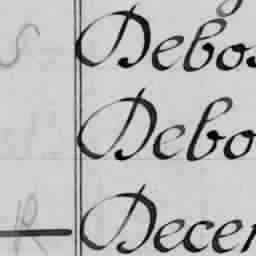 S Debos
Debo
R Decer